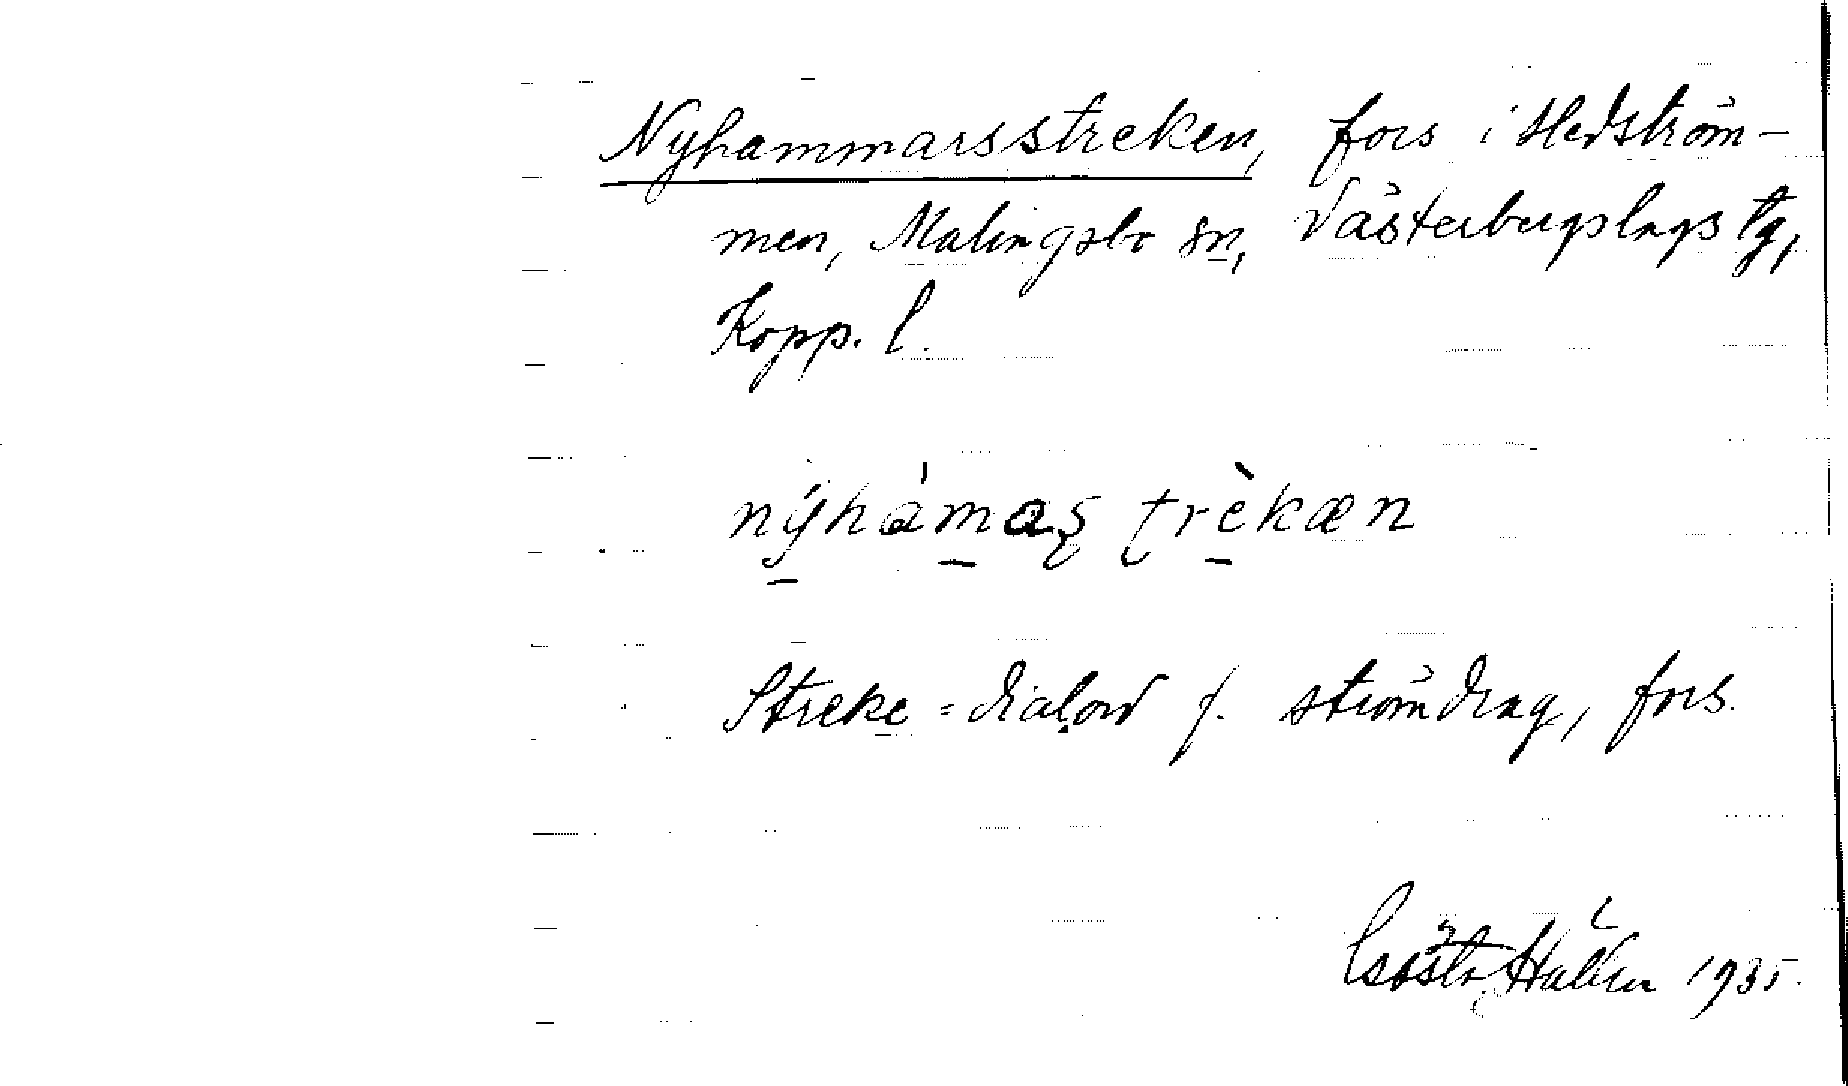 Nyhammarsstreken, fors i Hedström-
men, Malingsbo sn, Västerbergslags tg,
Kopp. l.
nýhàmaș trèkæn
Streke = dialord f. strömdrag, fors.
Gösta Hallén 1935.